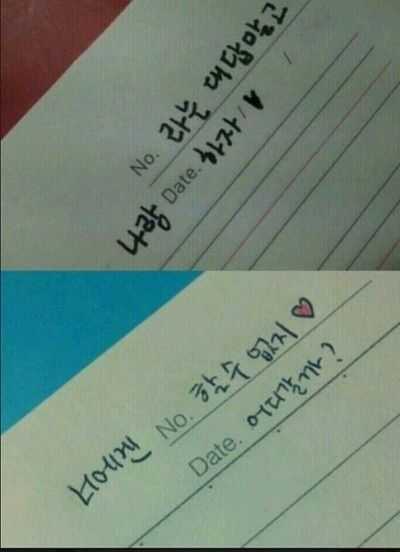 No. 라는 대답말고
나랑 Date. 하자
너에겐 No. 할수 없지♥
Date. 어디갈까?